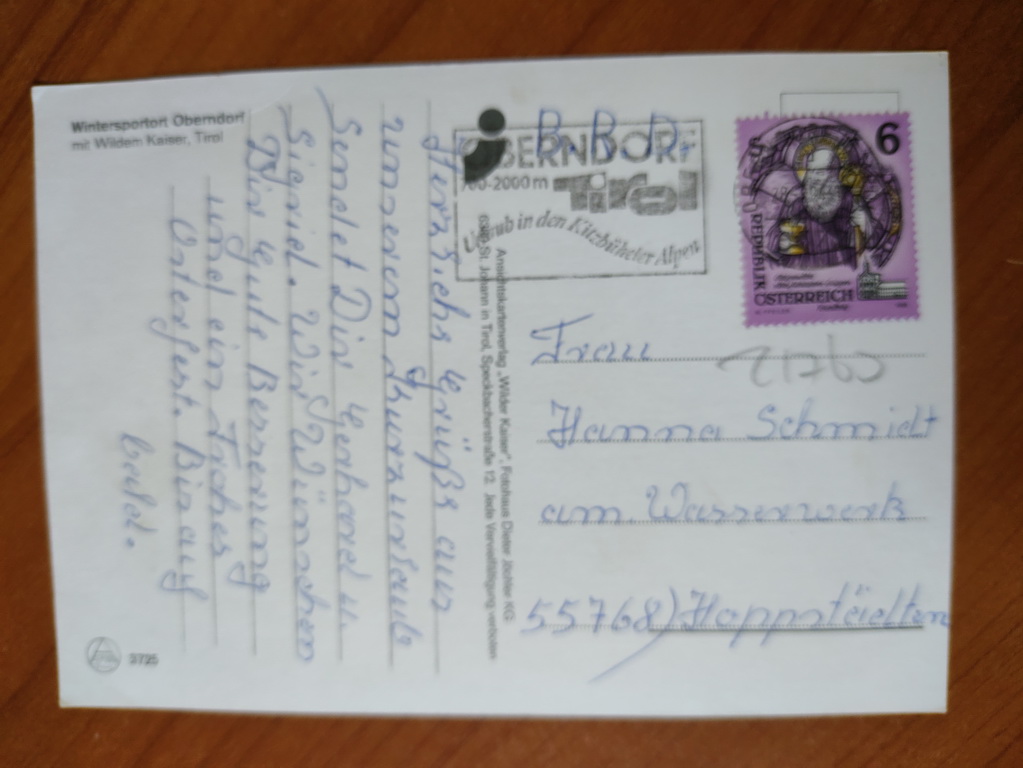 Wintersportort Oberndorf
mit Wildem Kaiser, Tirol
Herzliche Grüße aus
unserem Kurzurlaub
Sendet Dir Gerhard u.
Sigrid. Wir Wünschen
Dir Gute Besserung
und ein Frohes
Osterfest. Bis auf
bald.
3725
Ansichtskartenverlag „Wilder Kaiser", Fotohaus Dieter Jöchler KG
6380 St. Johann in Tirol, Speckbacherstraße 12. Jede Vervielfältigung verboten
B.R.D.
OBERNDORF
700-2000 m Tirol
Urlaub in den Kitzbüheler Alpen
6
REPUBLIK
ÖSTERREICH
Frau
Hanna Schmidt
am Wasserwerk
55768) Hoppstädten